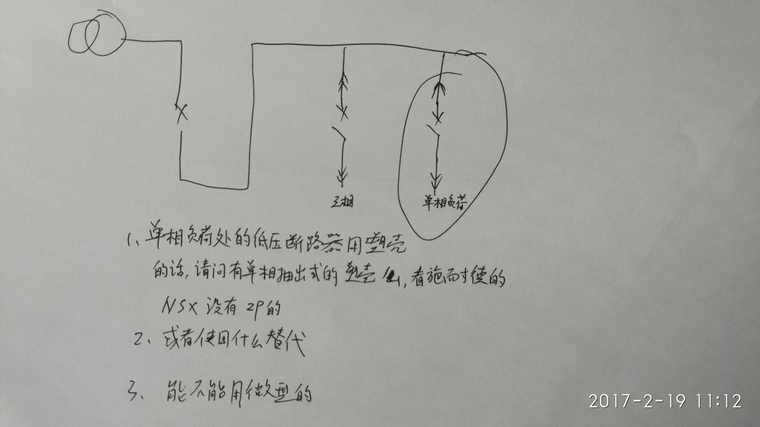 三相
单相负荷
1、单相负荷处的低压断路器用塑壳
的话,请问有单相抽出式的塑壳么,看施耐德的
NSX没有2P的
2、或者使用什么替代
3、能不能用微型的
2017-2-19 11:12